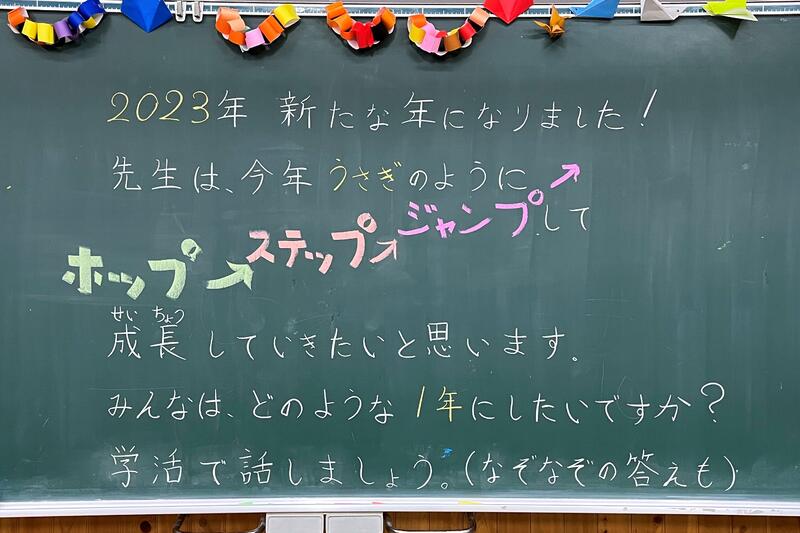 2023年 新たな年になりました!
先生は、今年うさぎのように
ホップ→ステップ→ジャンプ→して
せい ちょう
成長していきたいと思います。
みんなは、どのような1年にしたいですか?
学活で話しましょう。(なぞなぞの答えも)